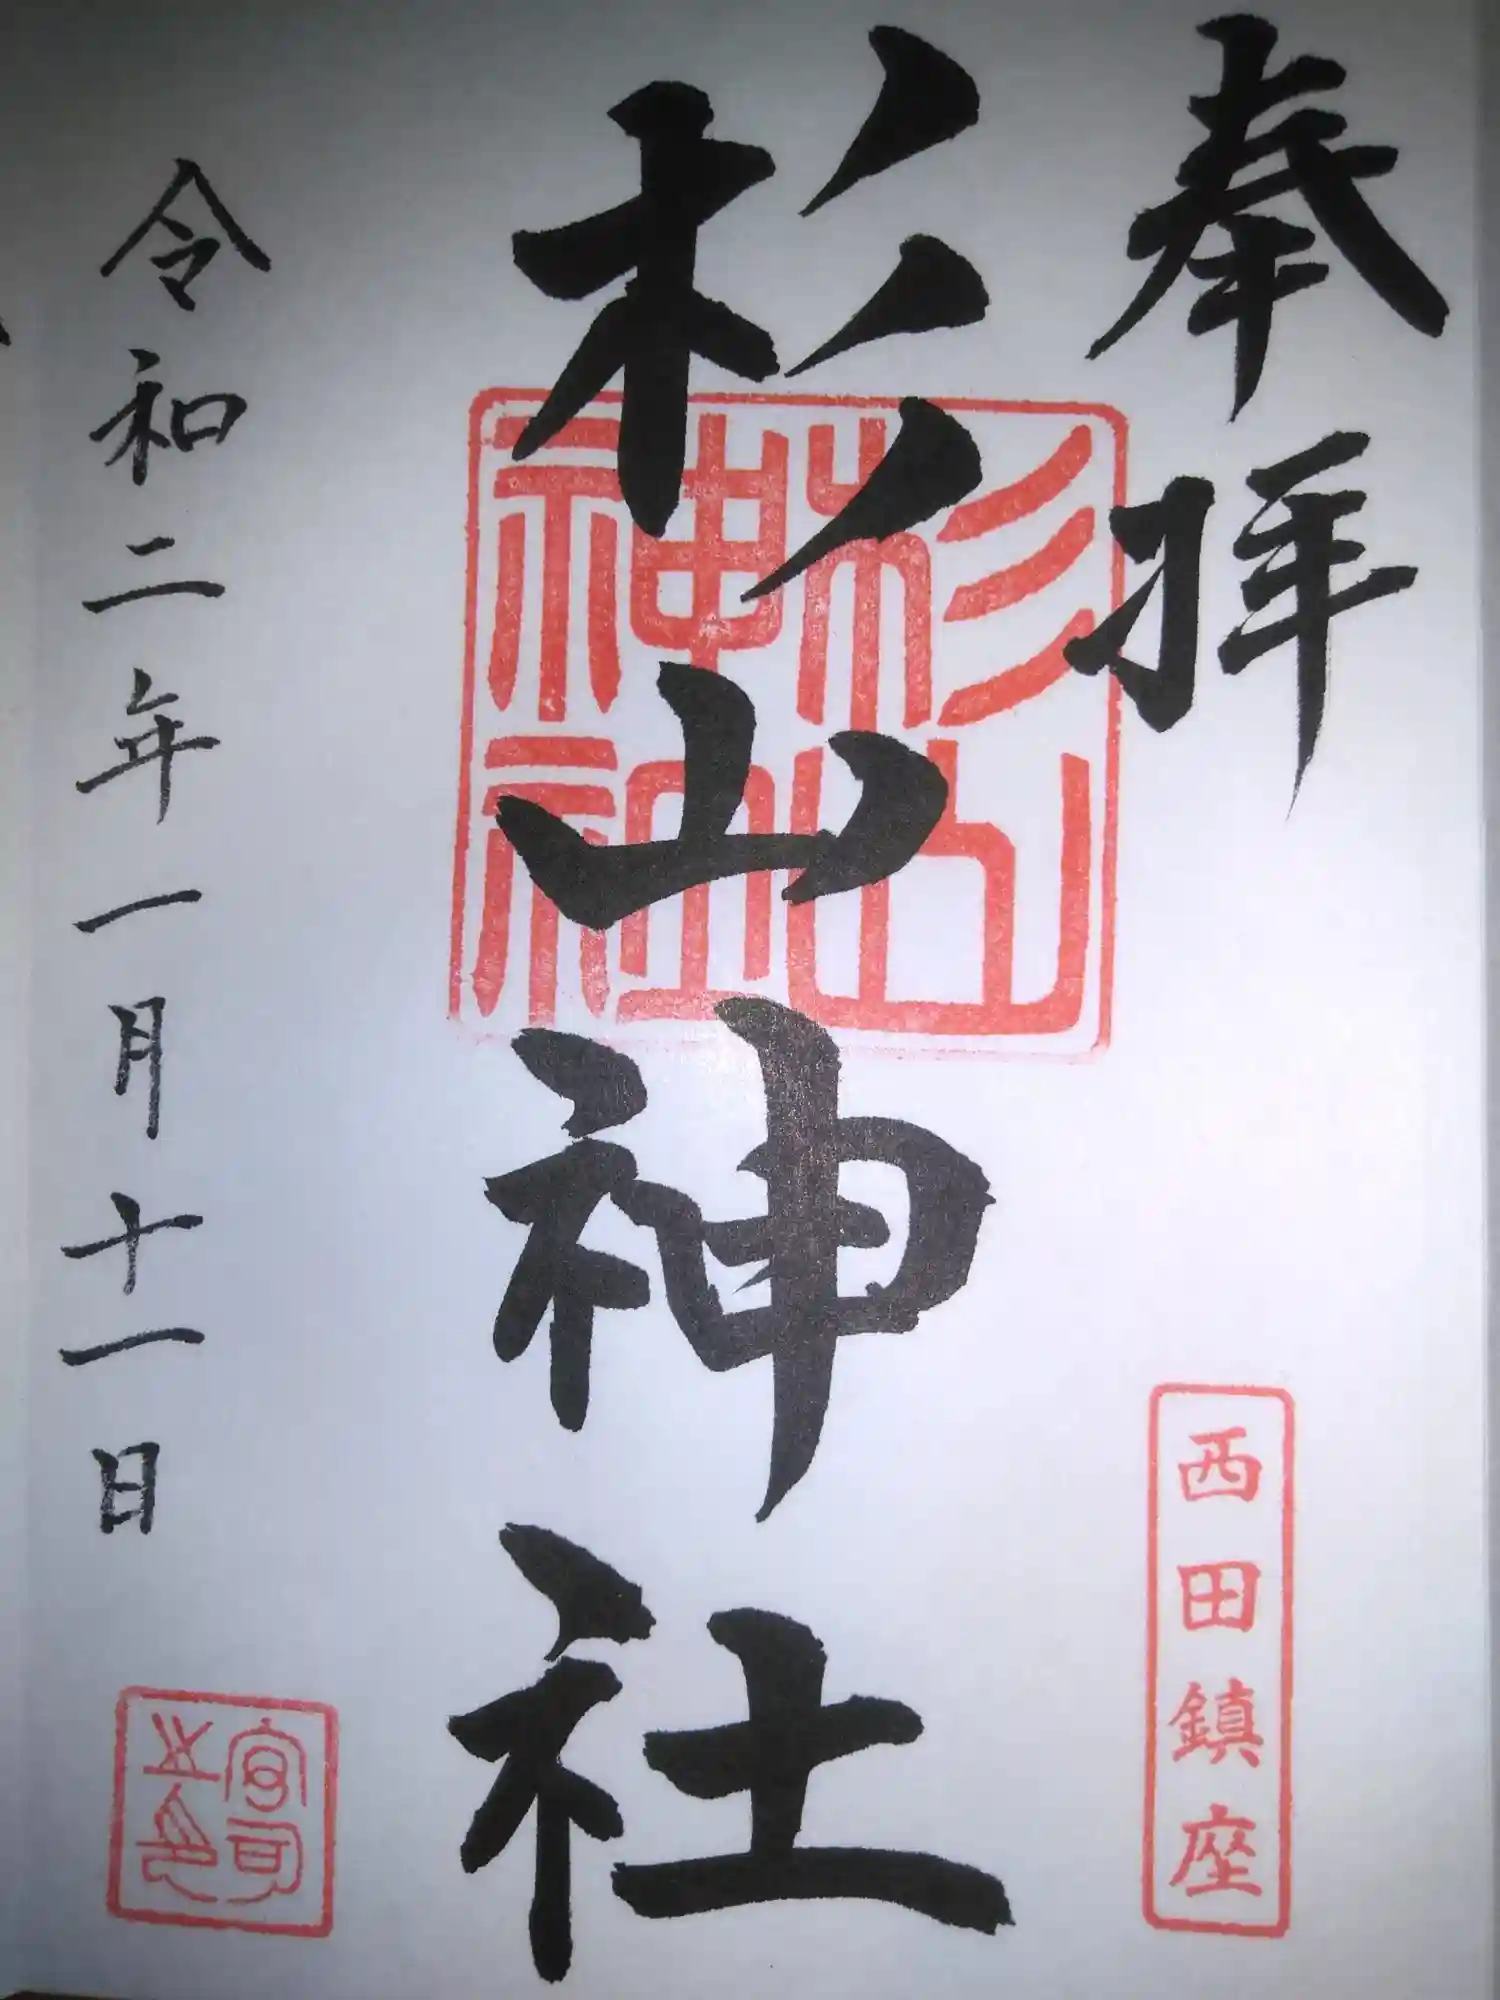 奉拝
西田鎮座
杉山神社
杉山
神社
令和二年一月十一日
宮司
之印